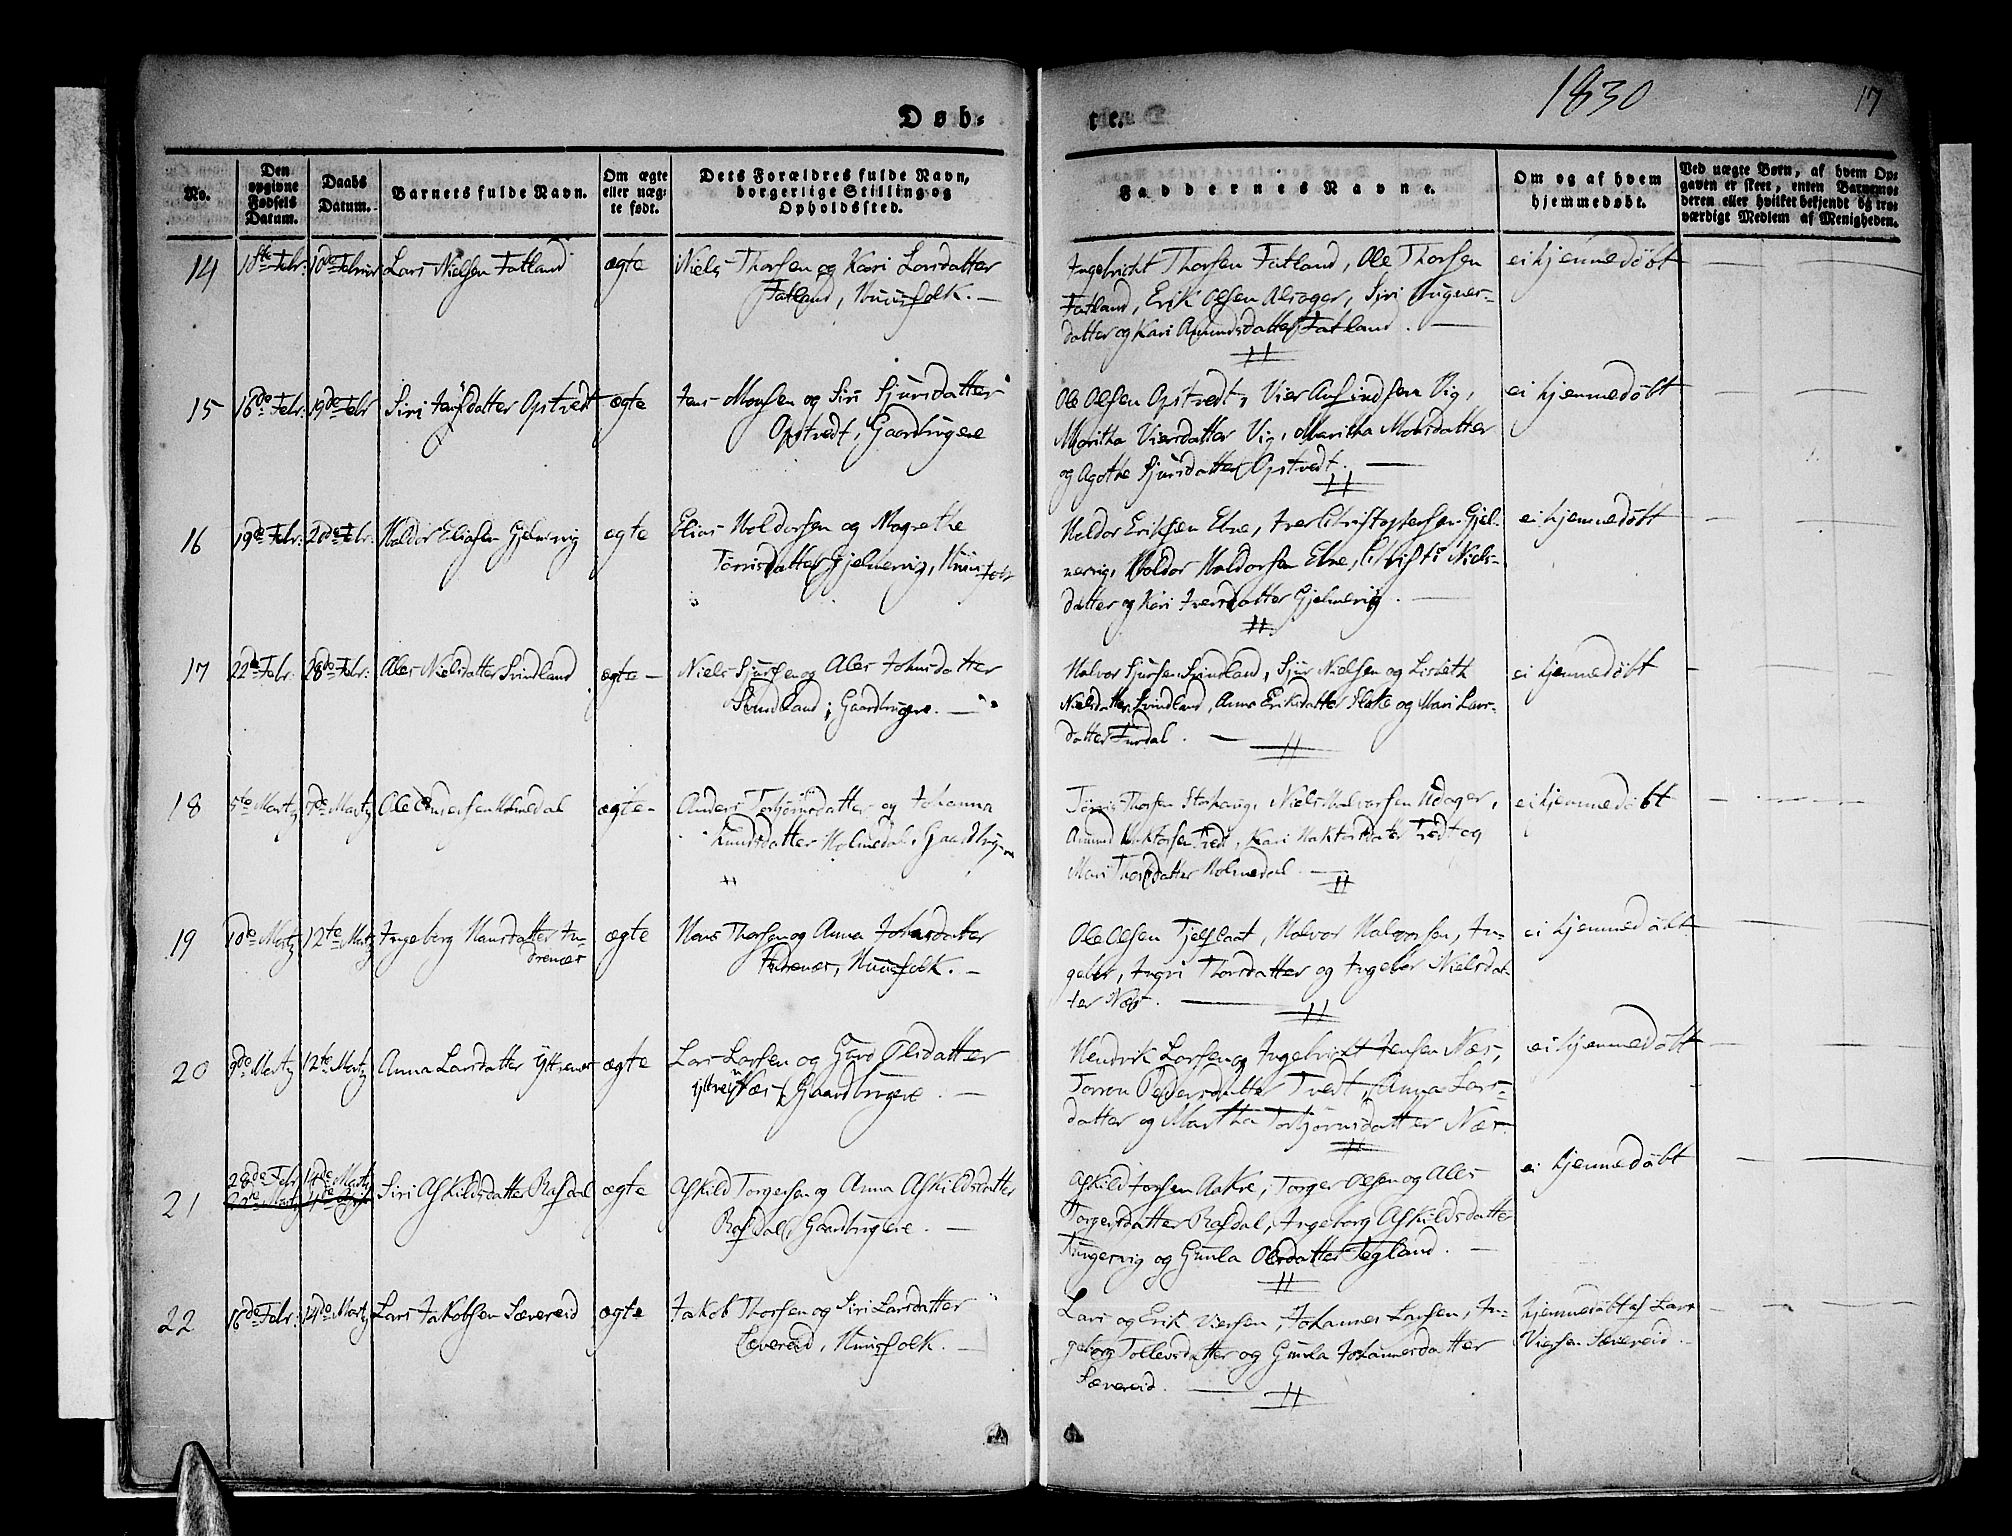 1830
17
Døb-
te.
No.
Den opgivne Fødsels Datum.
Daabs Datum.
Barnets fulde Navn.
Om ægte eller uægte født.
Dets Forældres fulde Navn, borgerlige Stilling og Opholdssted.
Faddernes Navne.
Om og af hvem hjemmedøbt.
Ved uægte Børn, af hvem Opgaven er skeet, enten Barnemoderen eller hvilket bekjendt og troværdigt Medlem af Menigheden.
14
Lars Nielsen Fatland
ægte
Niels Thorsen og Kari Larsdatter
Fatland, Huusfolk. —
Ingebricht Thorsen Fatland, Ole Thorsen
Fatland, Erik Olsen Alsager, Siri
datter og Kari Amundsdatter Fatland. —
ei hjemmedöbt
15
16de Febr: 19de Febr
Siri Jensdatter Opstvedt
ægte
Jens Monsen og Siri Sjursdatter
Opstvedt, Gaardbrugere
Ole Olsen Opstvedt, Vier Anfindsen Vig,
Maritha Viersdatter Vig, Maritha Monsdatter
og Agothe Sjursdatter Opstvedt. —
ei hjemmedöbt
16
19de Febr: 20de Febr:
Haldor Eliasen Gjelmervig
ægte
Elias Haldorsen og Magrethe
Törrisdatter Gjelmervig, Huus folk
Haldor Eriksen Etne, Iver Christophersen Gjel-
mervig, Haldor Haldorsen Etne, Christi Niels-
datter og Kari Iversdatter Gjelmervig. —
ei hjemmedöbt
17
22de Febr: 28de Febr:
Ales Nielsdatter Svindland
ægte —
Niels Sjursen og Ales Johnsdatter
Svindland, Gaardbrugere. —
Halvor Sjursen Svindland, Sjur Nielsen og Lisbeth
Nielsdatter Svindland, Anna Eriksdatter Fláke og Mari Lars-
datter Furdal. —
ei hjemmedöbt
18
5te Martz 7de Martz
Ole Andersen Holmedal
ægte —
Anders Torbjörnsdatter og Johanna
Knudsdatter Holmedal, Gaardbrugere
Törris Thorsen Storhaug, Niels Halvorsen Udager,
Amund Haktorsen Tvedt, Kari Haktorsdatter Tvedt og
Mari Thorsdatter Holmedal. —
ei hjemmedöbt
19
10de Martz 12te Martz
Ingeborg Hansdatter In-
drenæs
ægte
Hans Thorsen og Anna Johnsdatter
Indrenæs, Huusfolk. —
Ole Olsen Fjelflaat, Halvor Halvorsen, In-
gebr, Ingri Thorsdatter og Ingebor Nielsdat-
ter Næs. —
ei hjemmedöbt
20
9de Martz 12te Martz
Anna Larsdatter Yttrenæs
ægte
Lars Larsen og Gurö Olsdatter
Næs, Gaardbrugere. —
Hendrik Larsen og Ingebricht Jensen Næs,
Torron Pedersdatter Tvedt, Anna Lars-
datter og Martha Torbjörnsdatter Næs.
ei hjemmedöbt
21
28de Febr 14de Martz
Siri Askildsdatter Rafdal
ægte
Askild Torgersen og Anna Askildsdatter
Rafdal, Gaardbrugere. —
Askild Aakre, Torger Olsen og Ales
Torgersdatter Rafdal, Ingeborg Askildsdatter
Tungervig og Gunla Olsdatter Tegland. —
ei hjemmedöbt
22
16de Febr: 14de Martz
Lars Jakobsen Sævereid
ægte
Jakob Thorsen og Siri Larsdatter
Sævereid, Huusfolk. —
Lars og Erik Viersen, Johannes Larsen, In-
geborg Tollevsdatter og Gunla Johannesdatter
Sævereid. —
hjemmedöbt af Lars
Viersen Sævereid.